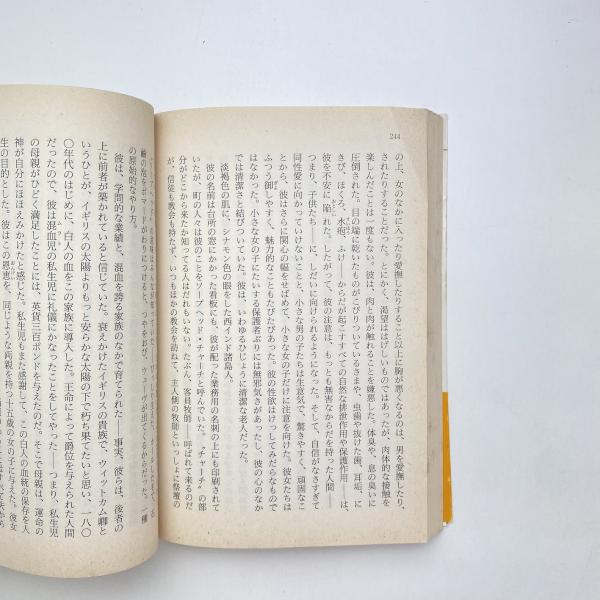 244
の上、女のなかに入ったり愛撫したりすること以上に胸が悪くなるのは、男を愛撫したり、
されたりすることだった。とにかく、渇望ははげしいものではあったが、肉体的な接触を
楽しんだことは一度もない。彼は、肉と肉が触れることを嫌悪した。体臭や、息の臭いに
圧倒された。目の端に乾いたものがこびりついているさまや、虫歯や抜けた歯、耳垢、に
きび、ほくろ、水疱、ふけ——からだが起こすすべての自然な排泄作用や保護作用——は、
彼を不安に陥れた。したがって、彼の注意は、もっとも無害なからだを持つ人間——
つまり、子供たち——に、しだいに向けられるようになった。そして、自信がなさすぎて
同性愛に向かっていけないことと、小さな男の子たちは生意気で、驚きやすく、頑固なこ
とから、彼はさらに関心の幅をせばめて、小さな女の子だけに注意を向けた。彼女たちは
ふつう御しやすく、魅力的なこともたびたびあった。彼の性欲はけっしてみだらなもので
はなかった。小さな女の子にたいする保護者ぶりには無邪気さがあったし、彼の心のなか
では清潔さと結びついていた。彼は、いわゆるひじょうに清潔な老人だった。
淡褐色の肌に、シナモン色の眼をした西インド諸島人。
彼の名前は台所の窓にかかった看板にも、彼が配った業務用の名刺の上にも印刷されて
いたが、町の人々は彼のことをソープヘッド・チャーチと呼んでいた。「チャーチ」の部
分がどこから来たか知ってる人はだれもいない。たぶん、客員牧師——呼ばれて来るのだ
が、信徒も教会も持たず、いつもほかの教会を訪ねて、主人側の牧師といっしょに祭壇の
の原始的なやり方。
彼は、学問的な業績と、混血を誇る家族のなかで育てられた——事実、彼らは、後者の
上に前者が築かれていると信じていた。衰えかけたイギリスの貴族で、ウィットカム卿と
いうひとが、イギリスの太陽よりもっと安らかな太陽の下で朽ち果てたいと思い、一八〇
〇年代のはじめに、白人の血をこの家族に導入した。王命によって爵位を与えられた人間
だったので、彼は混血児の私生児に礼儀にかなったことをしてやった——つまり、私生児
の母親がひどく満足したことには、英貨三百ポンドを与えたのだ。そこで母親は、運命の
神が自分にほほえみかけたと感じた。私生児もまた感謝して、この白人の血統の保存を人
生の目的とした。彼はこの恩恵を、同じような両親を持つ十五歳の女の子に与えた。彼女